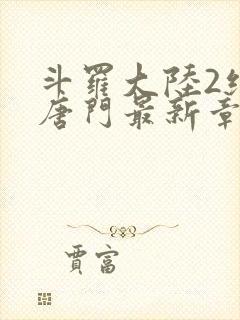 斗羅大陸2
唐門最新章
賈富